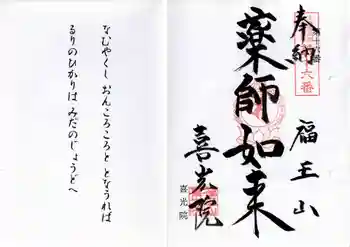 奉納
十六番
福王山
薬師如来
喜光院
喜光院
なむやくし おんころころと となうれば
るりのひかりは みだのじょうどへ